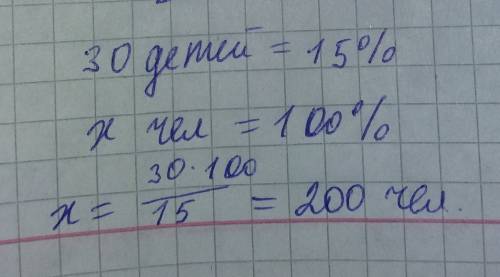 30 детей = 15%
х чел = 100%
х = 30·100/15 = 200 чел.